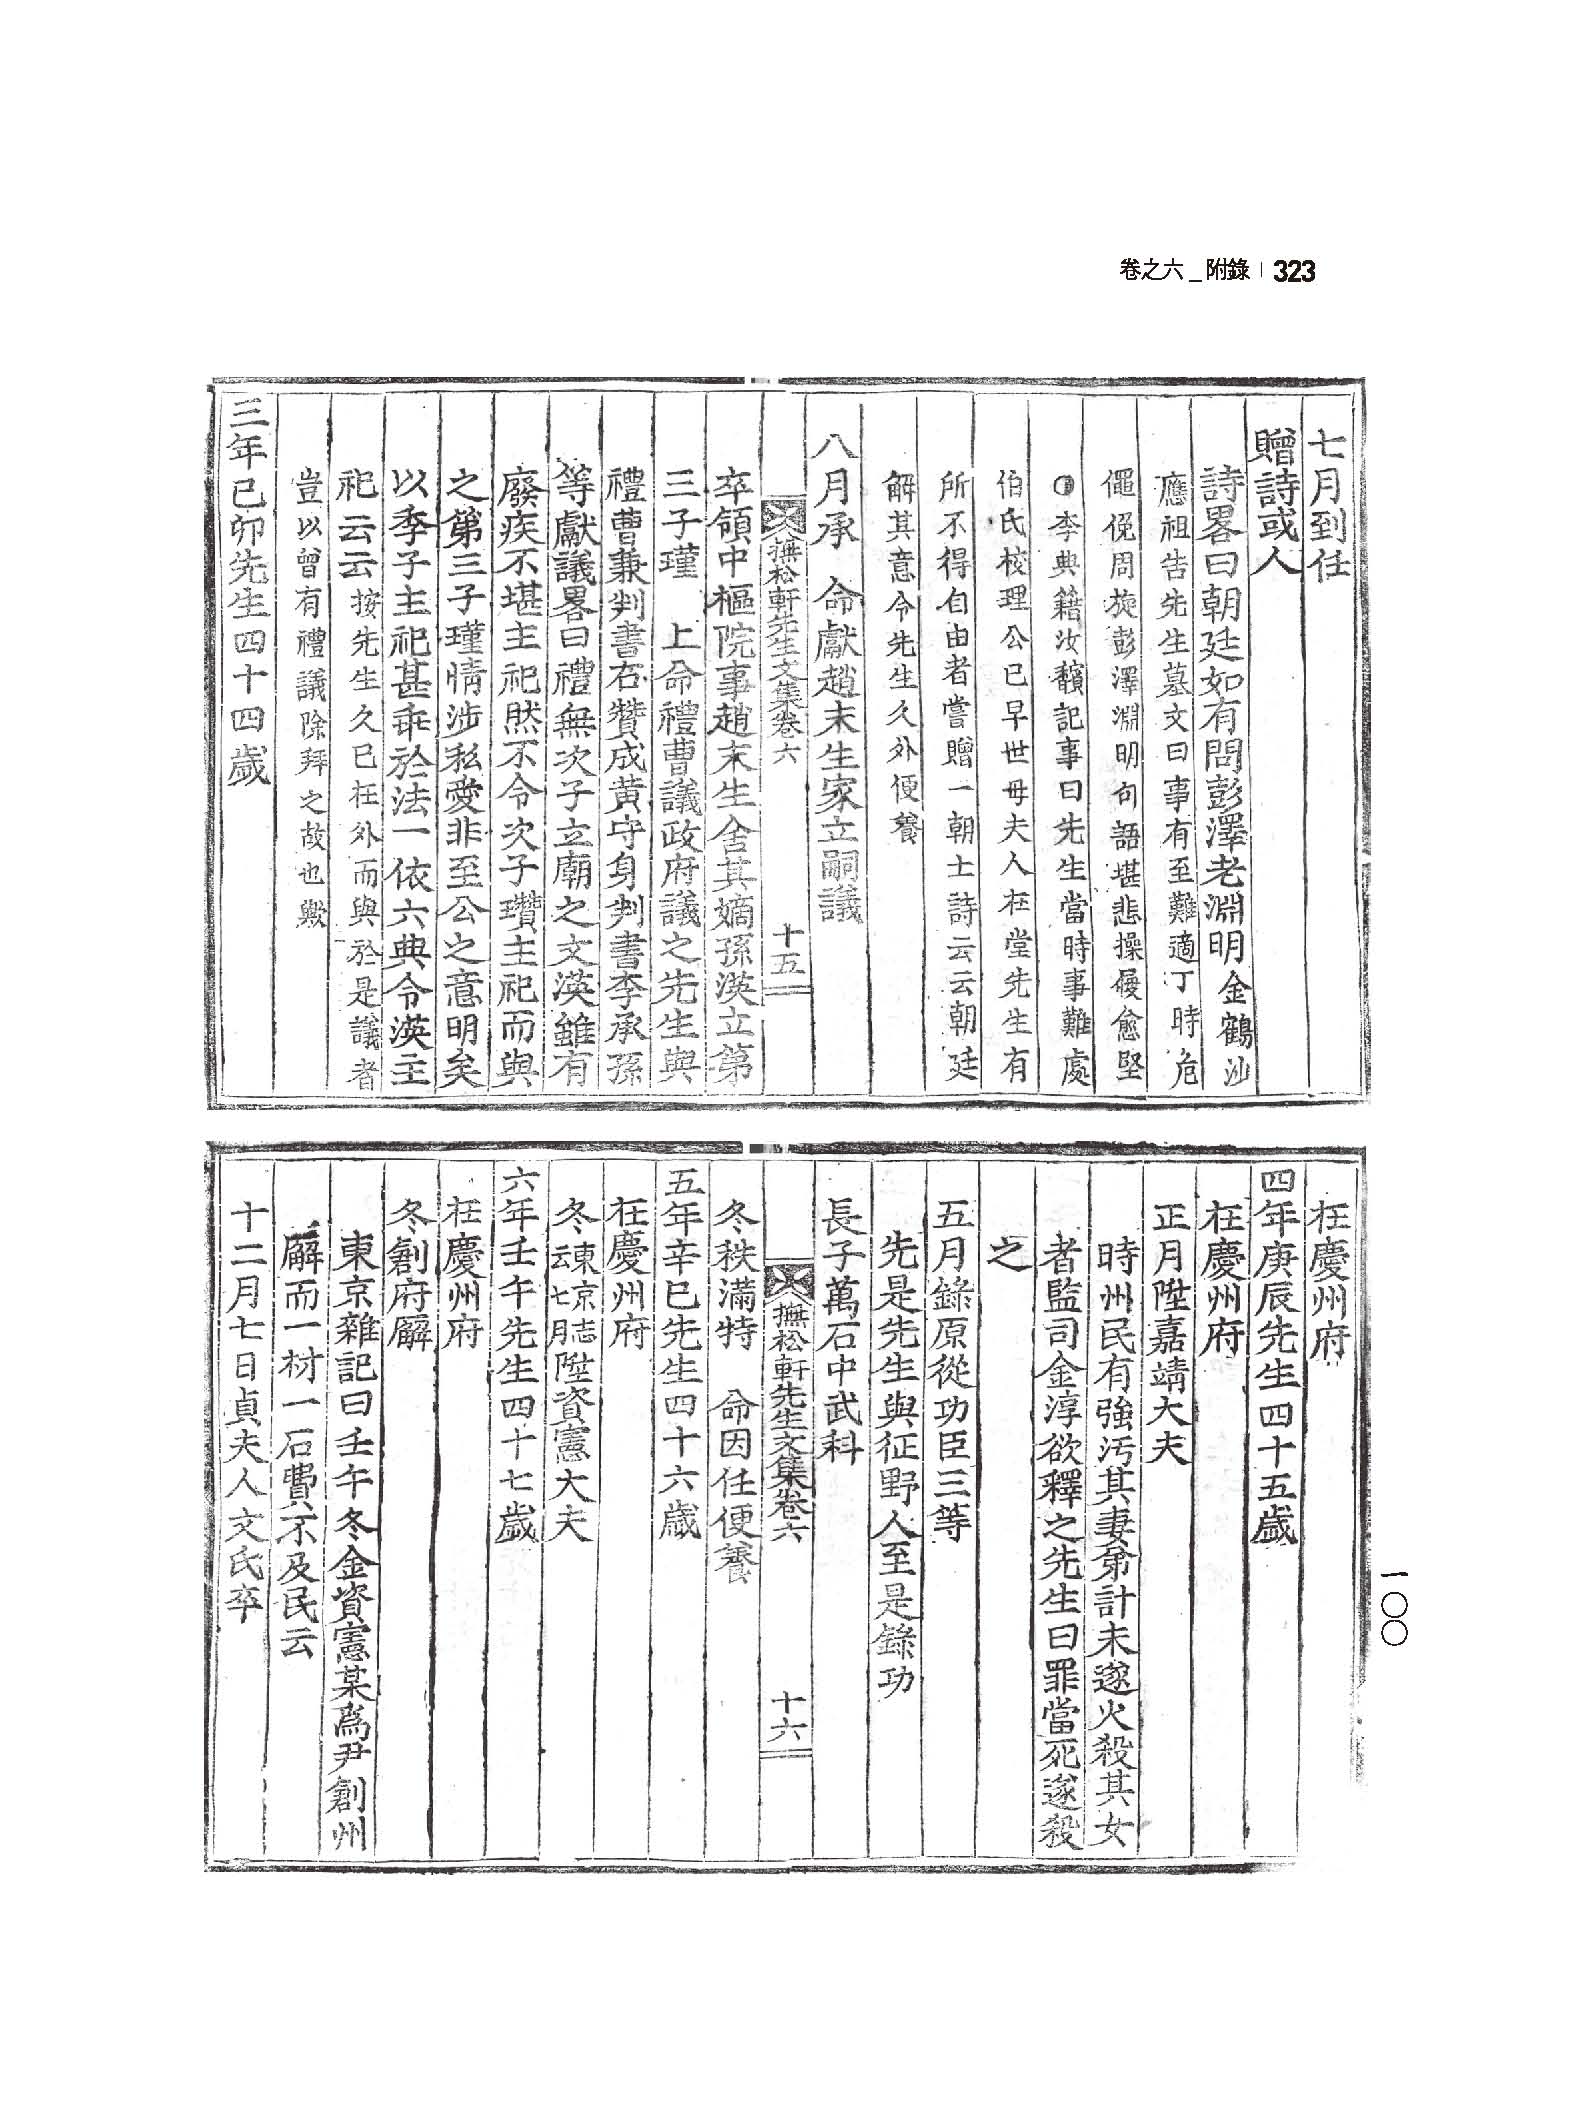 卷之六_附錄 | 323
七月到任
贈詩或人
詩畧曰朝廷如有問彭澤老淵明金鶴沙
應祖告先生墓文曰事有至難適丁時危
僶俛周旋彭澤淵明句語堪悲操履愈堅
李典籍汝馪記事曰先生當時事難處
伯氏校理公已早世母夫人在堂先生有
所不得自由者嘗贈一朝士詩云云朝廷
解其意令先生久外便養
八月承 命獻趙末生家立嗣議
撫松軒先生文集卷六 十五
卒領中樞院事趙末生舍其嫡孫渶立第
三子瑾 上命禮曹議政府議之先生與
禮曹兼判書右贊成黃守身判書李承孫
等獻議畧曰禮無次子立廟之文渶雖有
廢疾不堪主祀然不令次子瓚主祀而與
之第三子瑾情涉私愛非至公之意明矣
以季子主祀甚乖於法一依六典令渶主
祀云云按先生久已在外而與於是議者
豈以曾有禮議除拜之故也歟
三年己卯先生四十四歲
在慶州府
四年庚辰先生四十五歲
在慶州府
正月陞嘉靖大夫
時州民有強污其妻弟計未遂火殺其女
者監司金淳欲釋之先生曰罪當死遂殺
之
五月錄原從功臣三等
先是先生與征野人至是錄功
長子萬石中武科
撫松軒先生文集卷六 十六
冬秩滿特 命因任便養
五年辛巳先生四十六歲
在慶州府
冬東京志云七月陞資憲大夫
六年壬午先生四十七歲
在慶州府
冬創府廨
東京雜記曰壬午冬金資憲某爲尹創州
廨而一材一石費不及民云
十二月七日貞夫人文氏卒
一〇〇